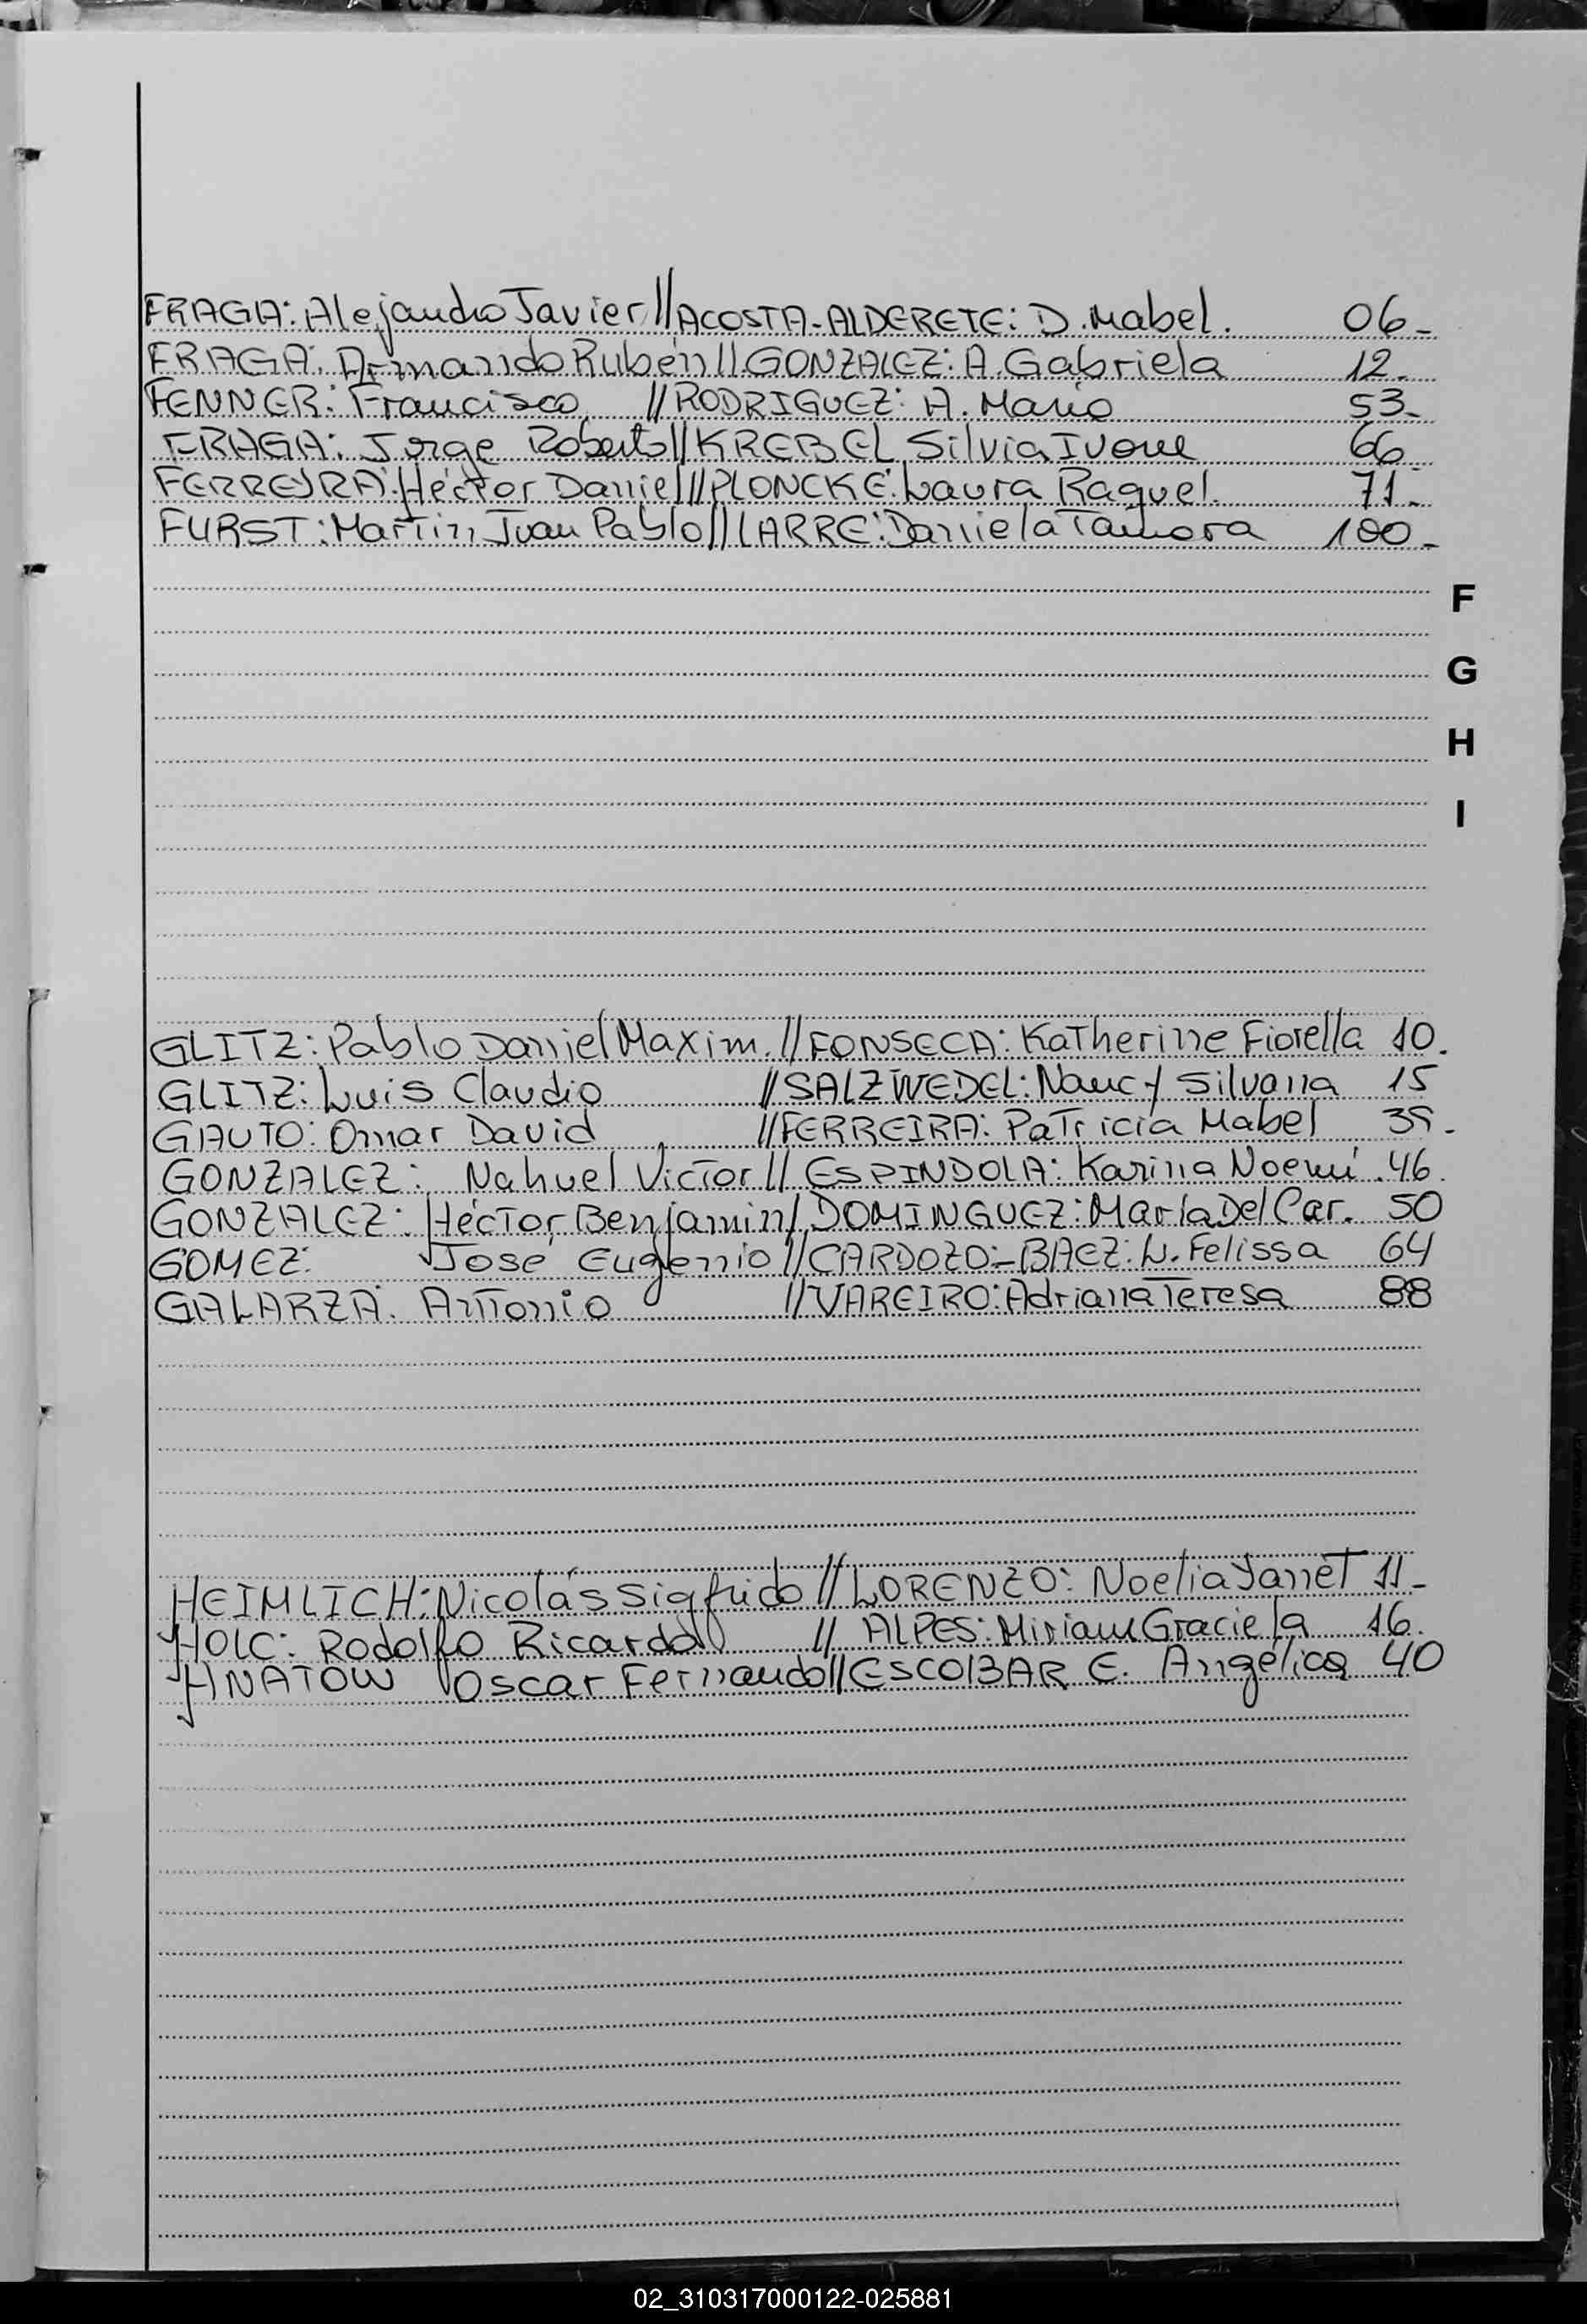 FRAGA: Alejandro Javier // ACOSTA-ALDERETE: D. Mabel. 06-
FRAGA: Armando Rubén // GONZALEZ: A. Gabriela 12.
FENNER: Francisco // RODRIGUEZ: A. Mario 53-
FRAGA: Jorge Roberto // KREBEL Silvia Ivone 66
FERREIRA: Héctor Daniel // PLONCKE: Laura Raquel. 71-
FURST: Martin, Juan Pablo // LARRE: Daniela Tamora 100-
F
G
H
I
GLITZ: Pablo Daniel Maxim. // FONSECA: Katherine Fiorella 10.
GLITZ: Luis Claudio // SALZWEDEL: Nancy Silvana 15
GAUTO: Omar David // FERREIRA: Patricia Mabel 35.
GONZALEZ: Nahuel Victor // ESPINDOLA: Karina Noemí. 46.
GONZALEZ: Héctor Benjamin / DOMINGUEZ: María Del Car. 50
GOMEZ: José Eugenio // CARDOZO-BAEZ: L. Felissa 64
GALARZA. Antonio // VAREIRO: Adriana Teresa 88
HEIMLICH: Nicolás Sigfrido // LORENZO: Noelia Janet 11-
HOLC: Rodolfo Ricardo // ALPES: Miriam Graciela 16.
HNATOW Oscar Fernando // ESCOBAR E. Angélica 40
02_310317000122-025881